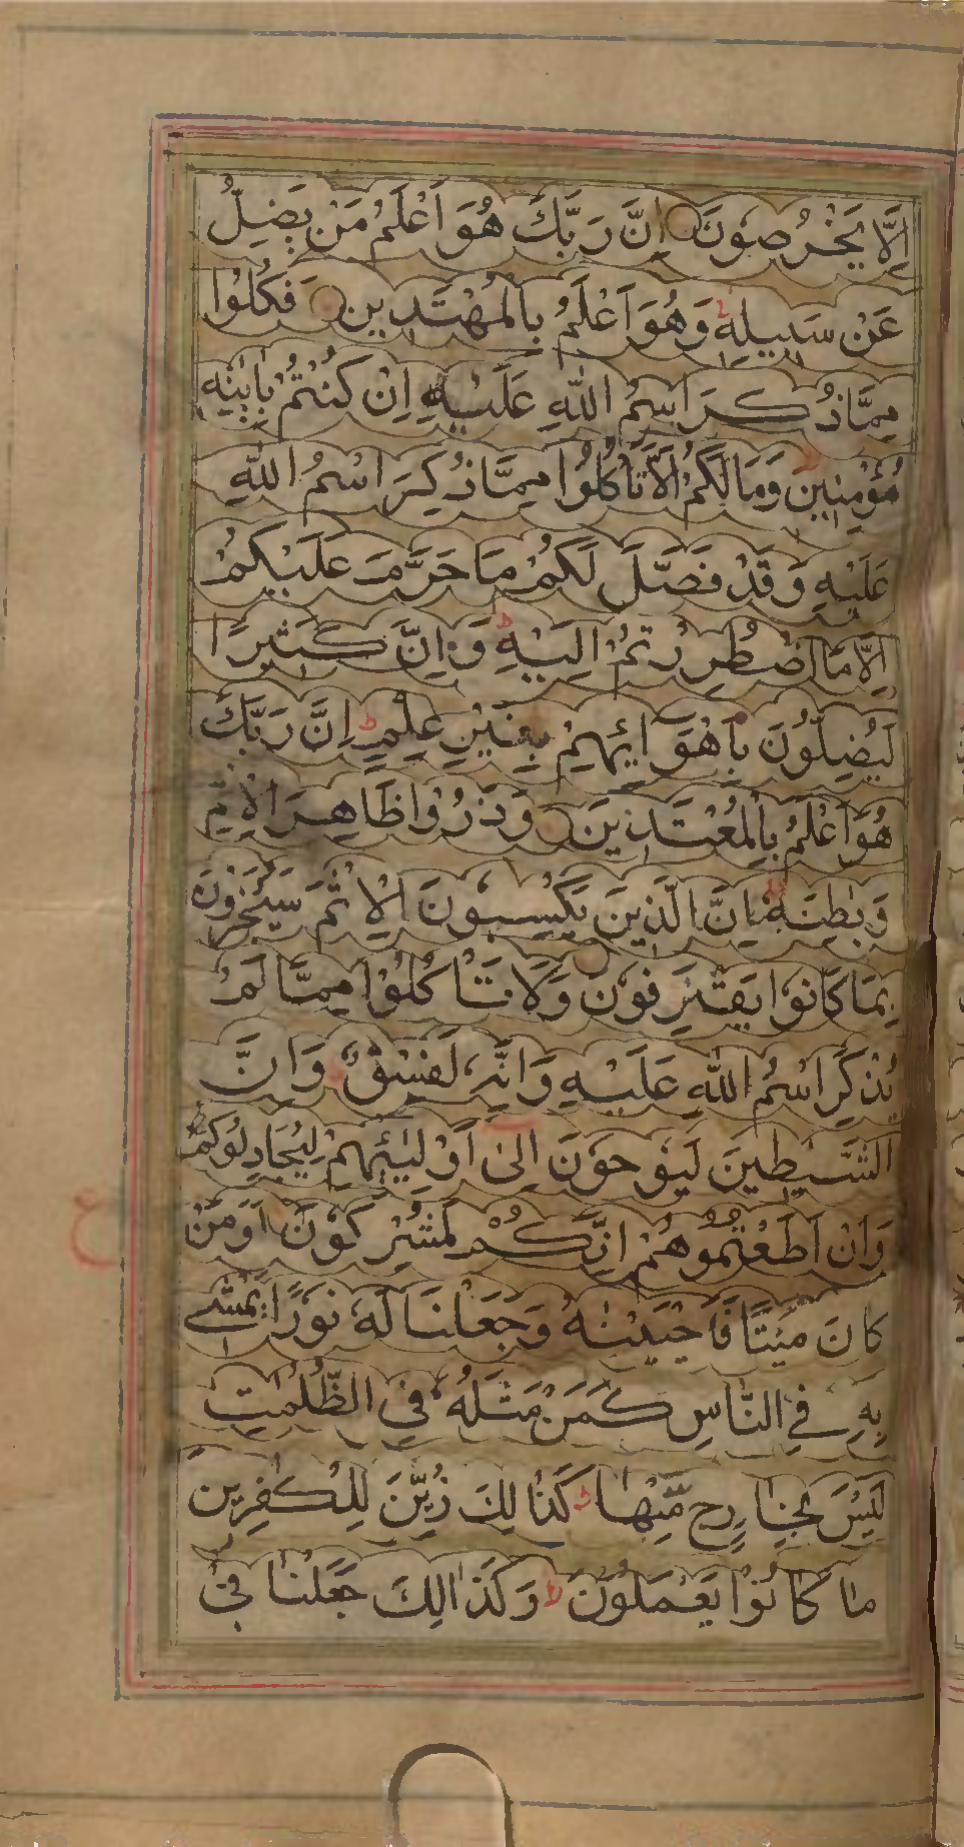 اِلَّا يَخْرُصُوْنَ اِنَّ رَبَّكَ هُوَ اَعْلَمُ مَنْ يَضِلُّ
عَنْ سَبِيلِهٖ ط وَهُوَ اَعْلَمُ بِالْمُهْتَدِينَ فَكُلُوْا
مِمَّا ذُكِرَ اسْمُ اللّٰهِ عَلَيْهِ اِنْ كُنْتُمْ بِاٰيٰتِهٖ
مُؤْمِنِينَ وَمَا لَكُمْ اَلَّا تَأْكُلُوْا مِمَّا ذُكِرَ اسْمُ اللّٰهِ
عَلَيْهِ وَقَدْ فَصَّلَ لَكُمْ مَا حَرَّمَ عَلَيْكُمْ
اِلَّا مَا اضْطُرِرْتُمْ اِلَيْهِ ط وَاِنَّ كَثِيرًا
لَيُضِلُّوْنَ بِاَهْوَايِٕهِمْ بِغَيْرِ عِلْمٍ ط اِنَّ رَبَّكَ
هُوَ اَعْلَمُ بِالْمُعْتَدِينَ وَذَرُوْا ظَاهِرَ الْاِثْمِ
وَبٰطِنَهٗ ط اِنَّ الَّذِينَ يَكْسِبُوْنَ الْاِثْمَ سَيُجْزَوْنَ
بِمَا كَانُوْا يَقْتَرِفُوْنَ وَلَا تَأْكُلُوْا مِمَّا لَمْ
يُذْكَرِ اسْمُ اللّٰهِ عَلَيْهِ وَاِنَّهٗ لَفِسْقٌ ط وَاِنَّ
الشَّيٰطِينَ لَيُوْحُوْنَ اِلٰى اَوْلِيٰٓئِهِمْ لِيُجَادِلُوْكُمْ ط
وَاِنْ اَطَعْتُمُوْهُمْ اِنَّكُمْ لَمُشْرِكُوْنَ اَوَمَنْ ع
كَانَ مَيْتًا فَاَحْيَيْنٰهُ وَجَعَلْنَا لَهٗ نُوْرًا يَّمْشِي
بِهٖ فِي النَّاسِ كَمَنْ مَّثَلُهٗ فِي الظُّلُمٰتِ
لَيْسَ بِخَارِجٍ مِّنْهَا ط كَذٰلِكَ زُيِّنَ لِلْكٰفِرِينَ
مَا كَانُوْا يَعْمَلُوْنَ ط وَكَذٰلِكَ جَعَلْنَا فِي